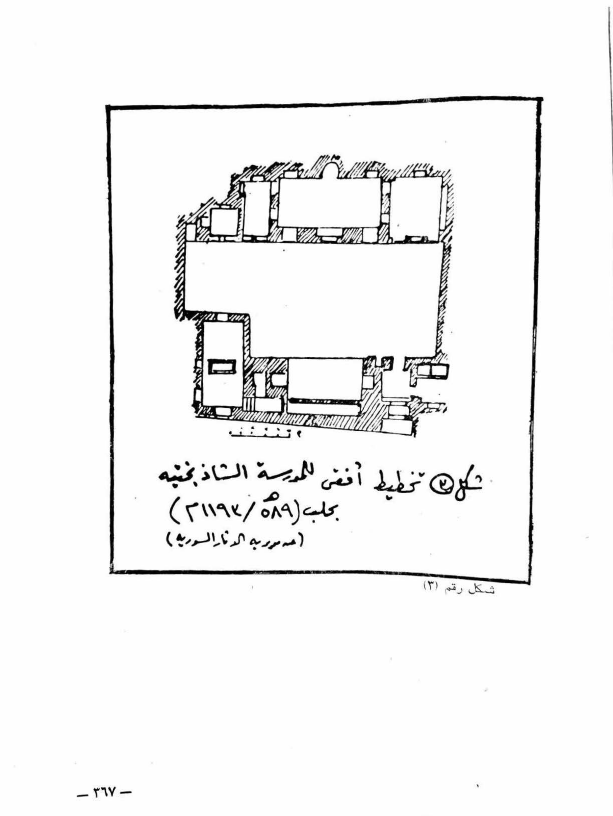 شكل (٣) تخطيط أفقى للمدرسة الشاذبختيه
بحلب (٥٨٩ه / ١١٩٣م)
(عن مديرية الآثار السورية)
شكل رقم (٣)
— ٣٦٧ —